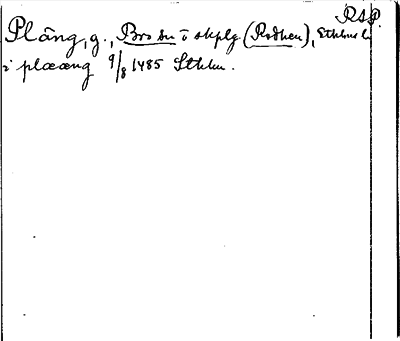 RSP.
Pläng, g., Bro sn i skplg (Rodhen), Sthlms l.
i plææng 9/8 1485 Sthlm.